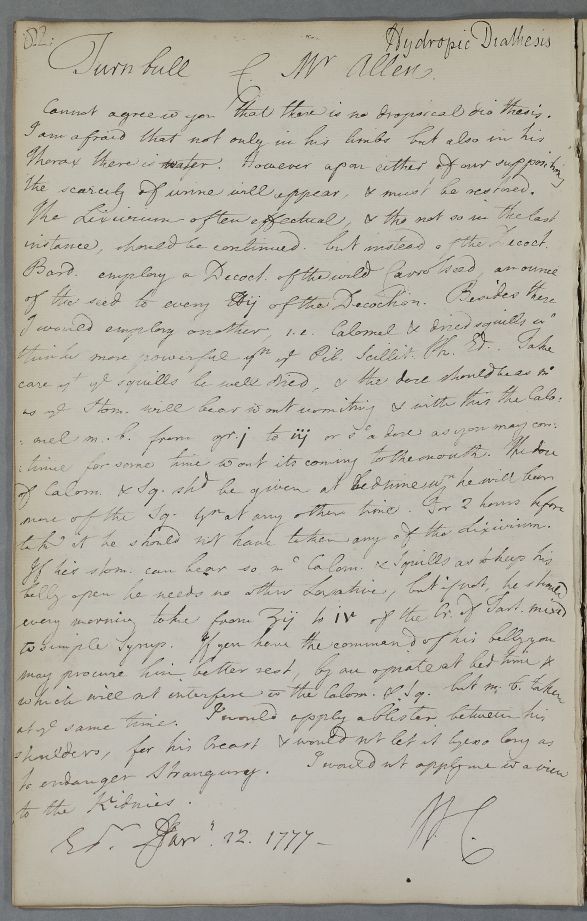 Hydropic Diathesis
Turnbull
Mr Allen.
Cannot agree w you that there is no dropsical diathesis.
I am afraid that not only in his limbs but also in his
Thorax there is water. However upon either of our suppositions
the scarcity of urine will appear, & must be restored.
The Lixivium often effectual, & tho not so in the last
instance, should be continued. but instead of the Decoct.
Bard. employ a Decoct. of the wild Carrot seed, an ounce
of the seed to every of the Decoction. Besides these
I would employ another, i.e. Calomel & dried squills wc
think more powerful yn ye Pil. Scillit. Ph. Ed. Take
care yt ye squills be well dried, & the dose should be as mc
as ye Stom. will bear wout vomiting & with this the Calo:
:mel m. b. from gr. j to iij or sc a dose as you may con:
:tinue for some time wout its coming to the mouth. The dose
of Calom. & Sq. shd be given at bedtime wn he will bear
more of the Sq. yn at any other time. For 2 hours before
take it he should not have taken any of the Lixivium.
If his stom. can bear so mc Calom. & Squills as to keep his
belly open he needs no other Laxative, but if not, he should
every morning take from ʒij to iv of the Cr. of Tart. mixed
w simple Syrup. If you have the command of his belly you
may procure him better rest, by an opiate at bed time &
which will not interfere w the Calom. & Sq. but m. b. taken
at ye same time. I would apply a blister between his
shoulders, for his breast & would not let it lye so long as
to endanger Strangury. I would not apply one w a view
to the Kidnies.
Edr. Janr. 12. 1777 -
W C.